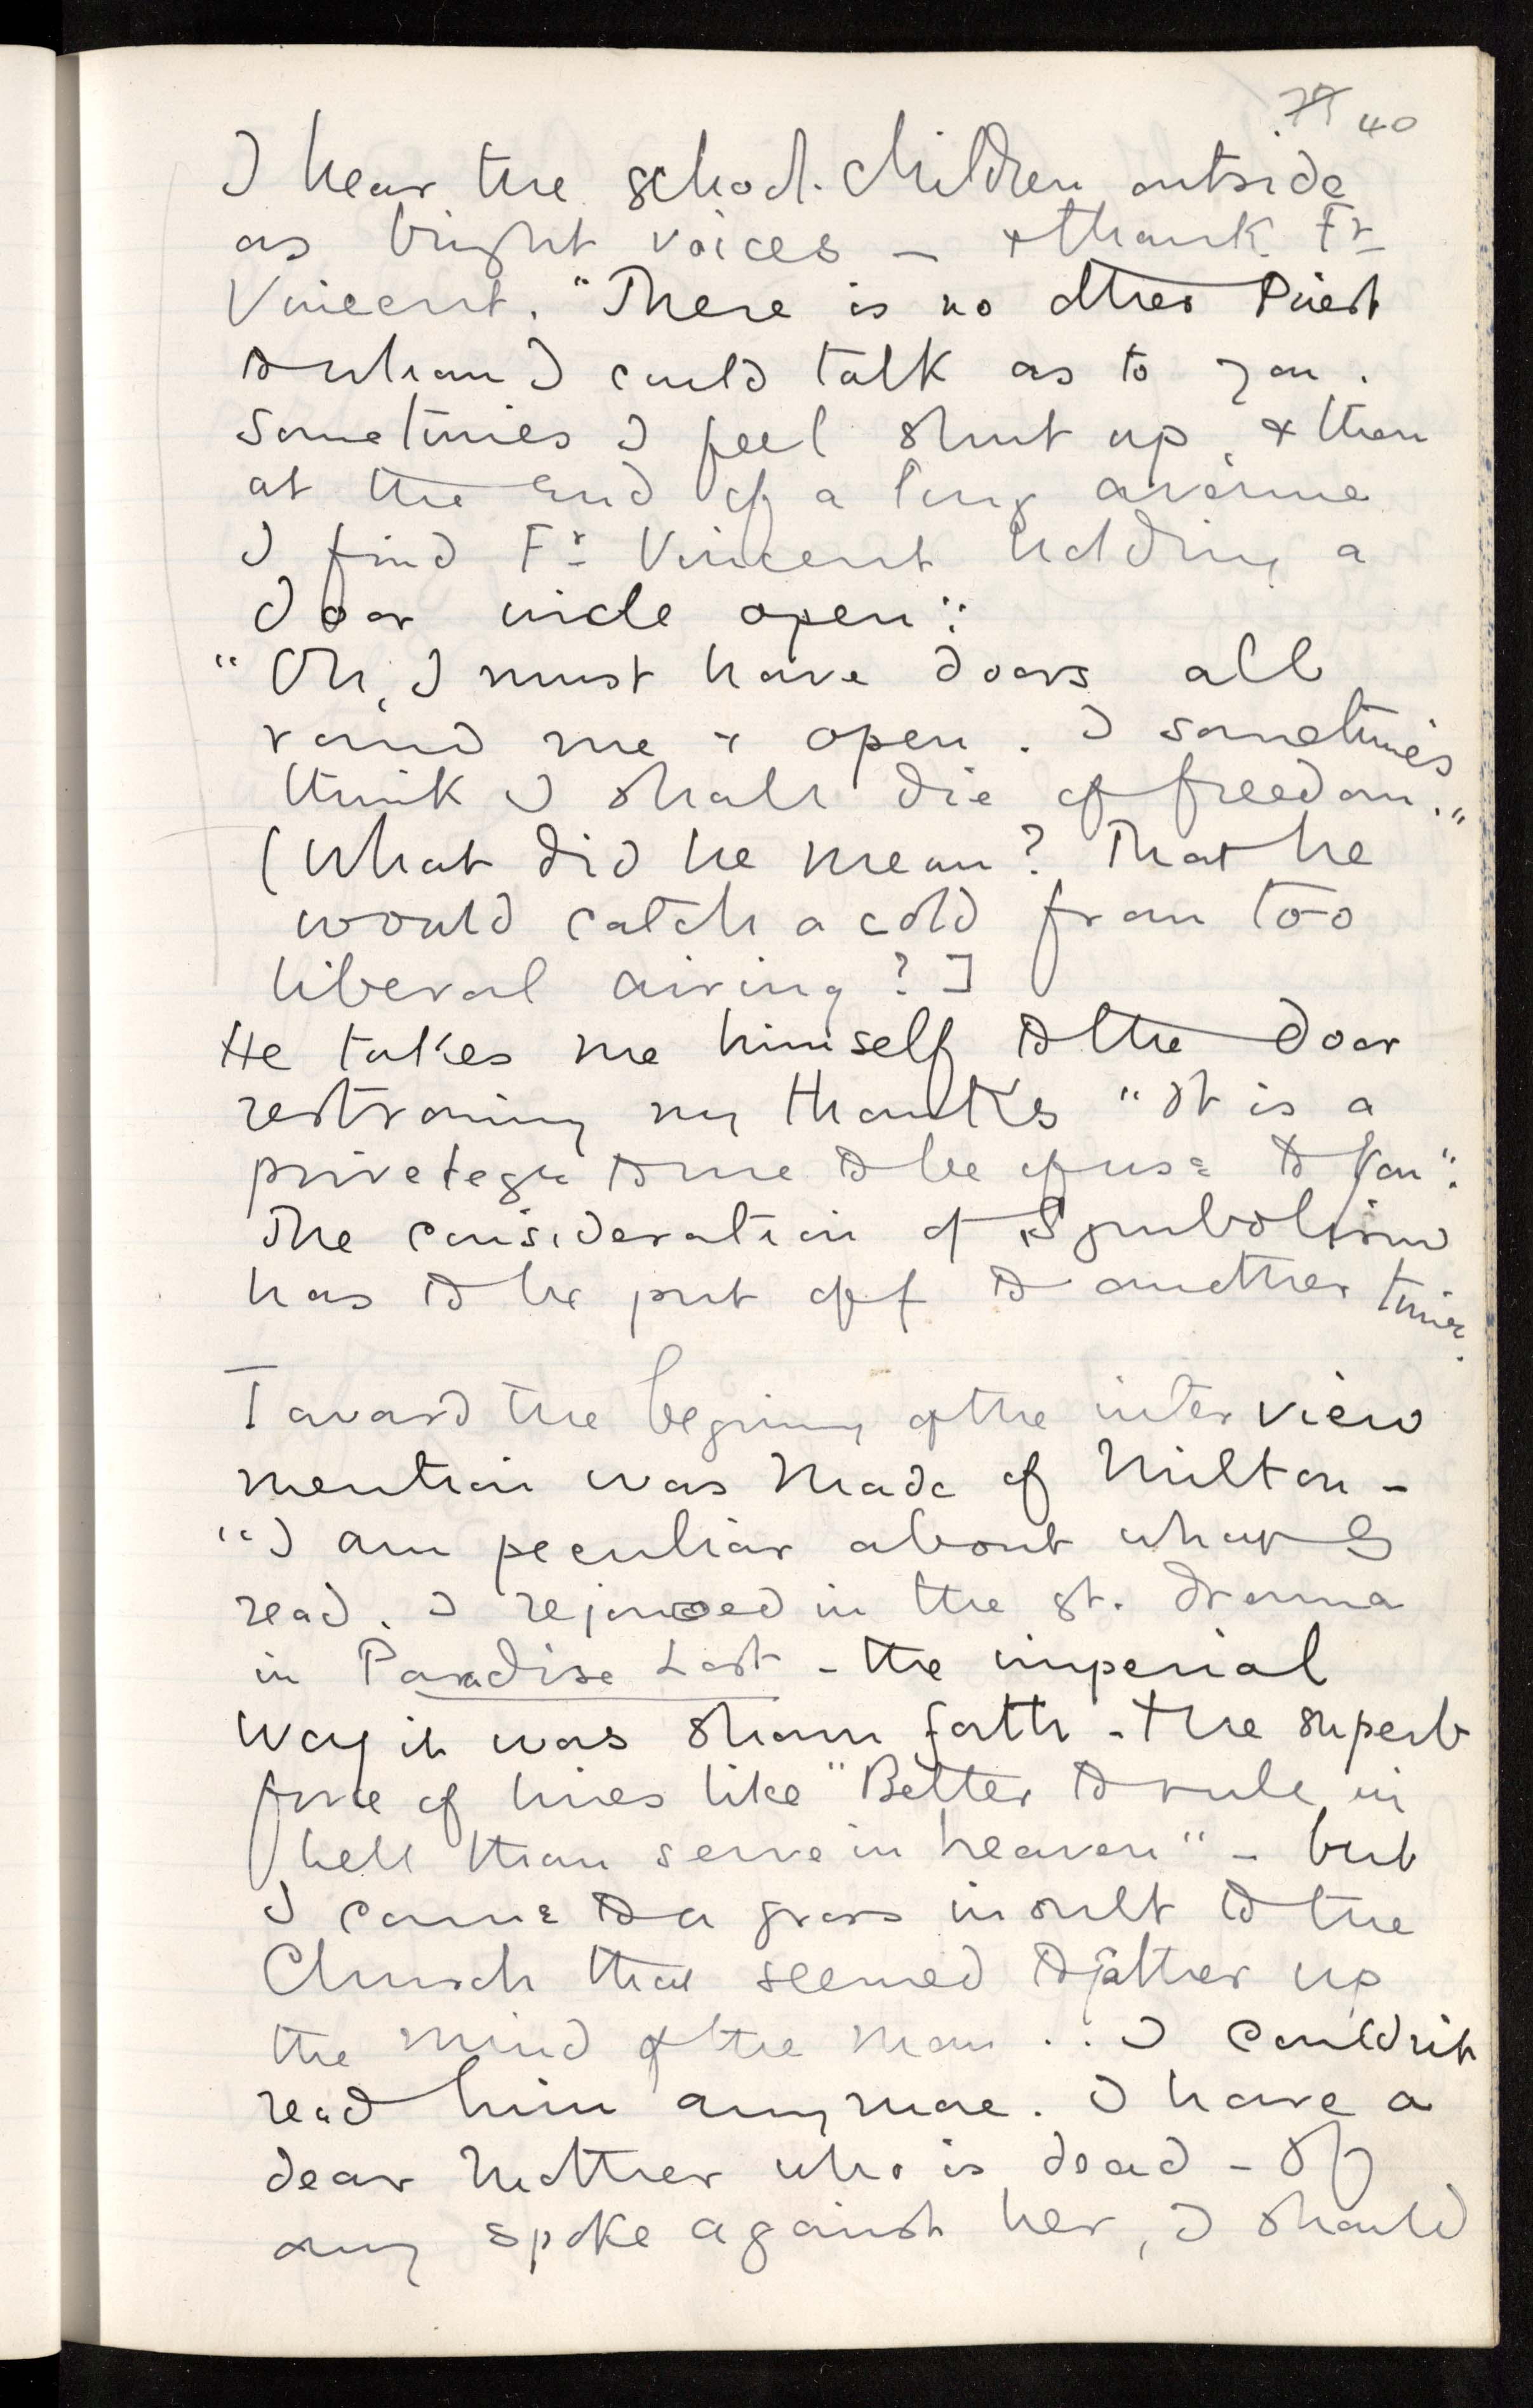 40
I hear the school-children outside
as bright voices – & thank Fr
Vincent. "There is no other Priest
to whom I could talk as to you.
Sometimes I feel shut up, & then
at the end of a long avenue
I find Fr Vincent holding a
door wide open".
"Oh, I must have doors all
round me & open. I sometimes
think I shall die of freedom."
(What did he mean? That he
would catch a cold from too
liberal airing?]
He takes me himself to the door
restraining my thanks "It is a
privelege to me to be of use to you".
The consideration of Symbolism
has to be put off to another time.
Toward the beginning of the interview
mention was made of Milton –
"I am peculiar about what I
read. I rejoiced in the gt. drama
in Paradise Lost – the imperial
way it was shown forth – the superb
force of lines like "Better to rule in
hell than serve in heaven" – but
I came to a gross insult to the
Church that seemed to gather up
the mind of the man .. I couldn't
read him any more. I have a
dear Mother who is dead – If
any spoke against her, I should